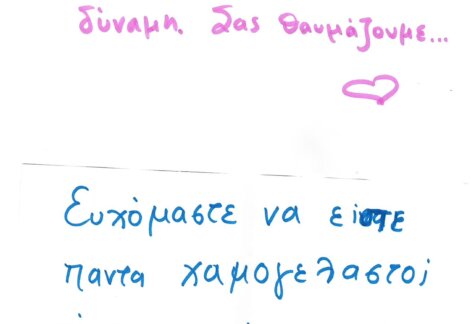 δύναμη. Σας θαυμάζουμε...
Ευχόμαστε να είστε
παντα χαμογελαστοι